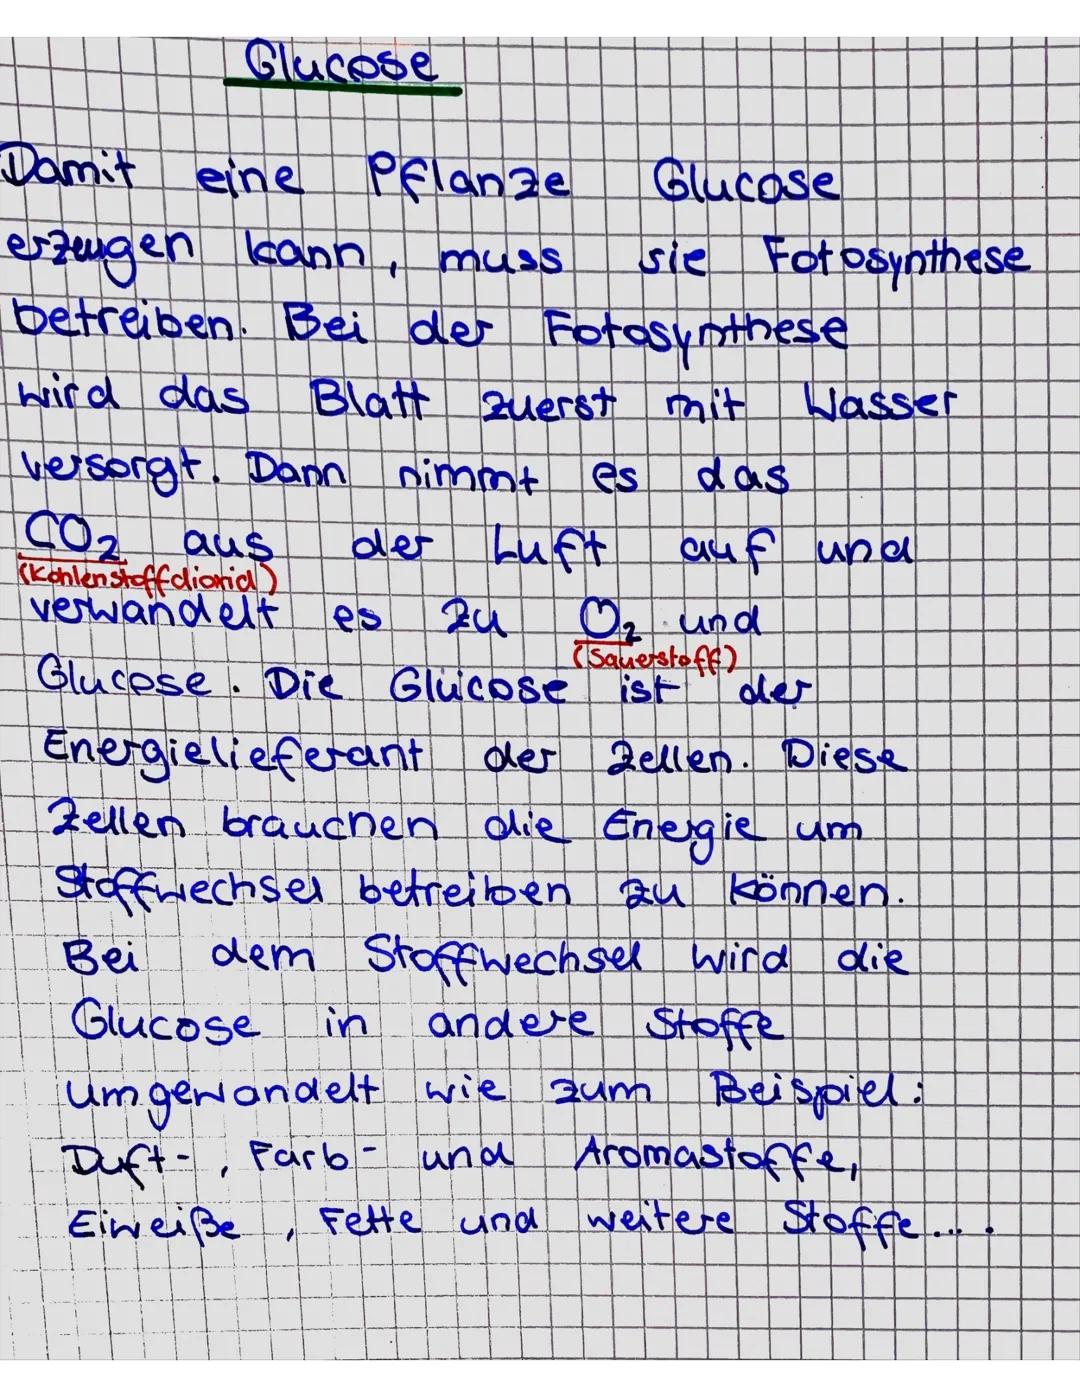 Glucose
Damit eine Pflanze Glucose
erzeugen kann, muss sie Fotosynthese
betreiben. Bei der Fotosynthese
wird das Blatt zuerst mit Wasser
versorgt. Dann nimmt es das
CO2 aus der Luft auf und
(Kohlenstoffdioxid)
verwandelt es zu O2 und
(Sauerstoff)
Glucose. Die Glucose ist der
Energielieferant der Zellen. Diese
Zellen brauchen die Energie um
Stoffwechsel betreiben zu können.
Bei dem Stoffwechsel wird die
Glucose in andere Stoffe
umgewandelt wie zum Beispiel:
Duft-, Farb- und Aromastoffe,
Eiweiße, Fette und weitere Stoffe....